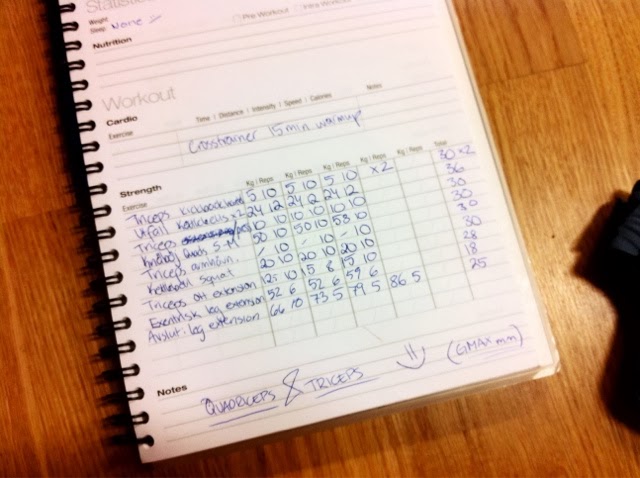 Statistics
Weight Pre Workout Intra Workout
Sleep None
Nutrition
Workout
Cardio
Exercise Time | Distance | Intensity | Speed | Calories Notes
Crosstrainer 15 min warmup
Strength
Exercise Kg | Reps Kg | Reps Kg | Reps Kg | Reps Kg | Reps Total
Triceps 5 10 5 10 5 10 x2 30 x2
Utfall kettlebells x2 24 12 24 12 24 12 36
Triceps 10 10 10 10 10 10 30
50 10 50 10 53 10 30
Triceps 10 10 10 30
Kettlebell Squat 20 10 20 10 20 10 30
Triceps extension 10 15 8 15 10 28
Exentrisk leg extension 52 6 52 6 59 6 18
Avslut. leg extension 66 10 73 5 79 5 86 5 25
Notes
QUADRICEPS & TRICEPS (GMAX mm)